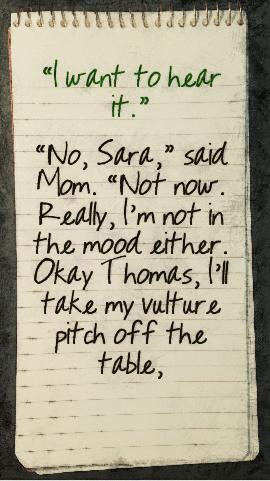 “I want to hear
it.”
“No, Sara,” said
Mom. “Not now.
Really, I’m not in
the mood either.
Okay Thomas, I’ll
take my vulture
pitch off the
table,